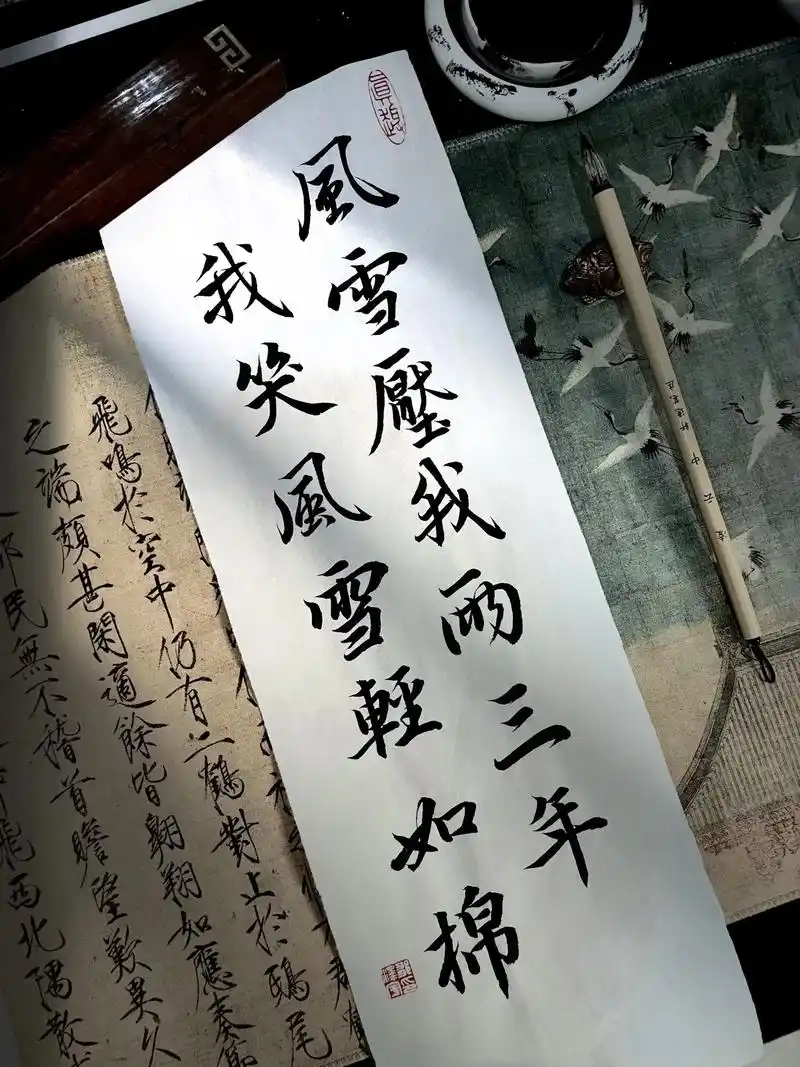 風雪壓我兩三年
我笑風雪輕如棉
飛鳴於空中仍有二鶴對止於鴟尾
之端頗甚閑適餘皆翱翔如應奏節
都民無不稽首瞻望歎異久
飛西北隅散